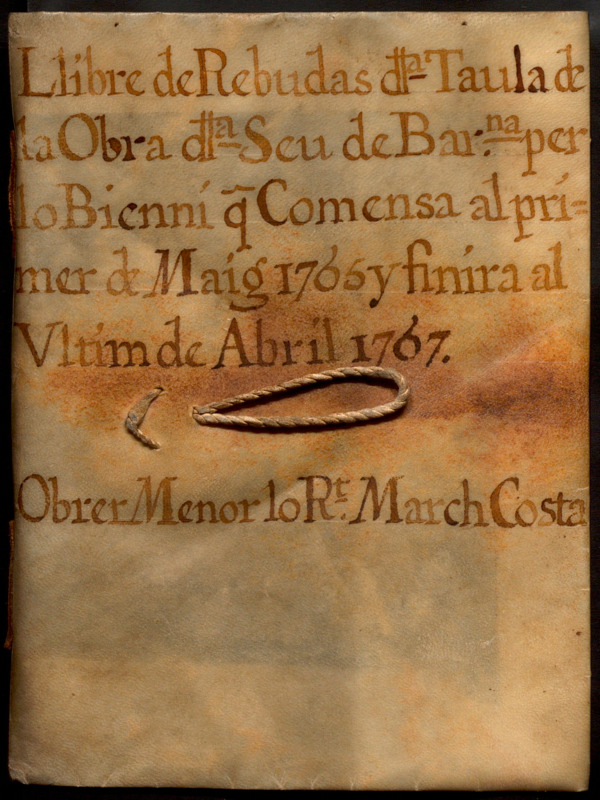 Llibre de Rebudas dłła Taula de
la Obra dłła Seu de Bar.na per
lo Bienni q̄ Comensa al pri=
mer de Maig 1765 y finira al
Ultim de Abril 1767.
Obrer Menor lo Rt. March Costa